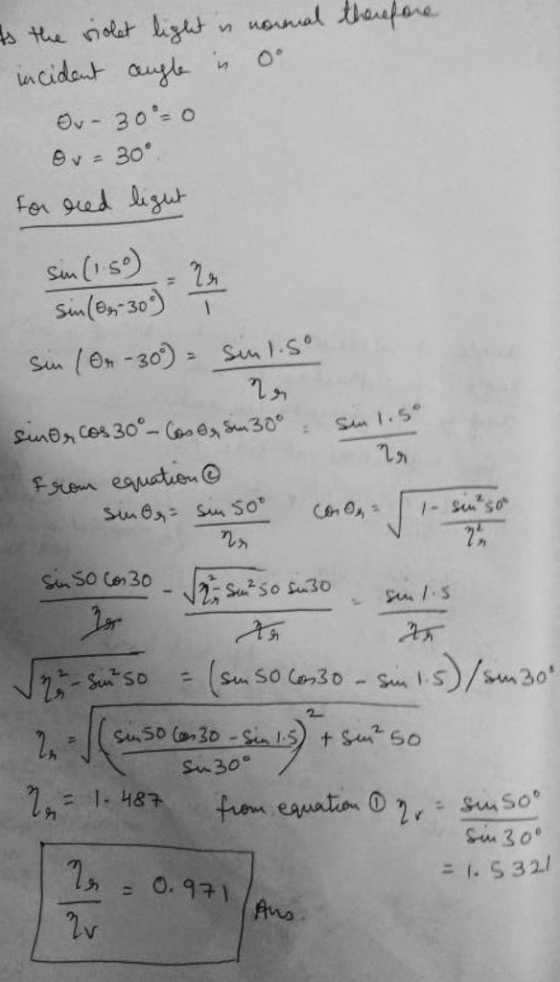 As the violet light is normal therefore
incident angle is 0°
θv - 30° = 0
θv = 30°.
For red light
sin(1.5°) / sin(θr-30°) = ηr / 1
sin(θr - 30°) = sin 1.5° / ηr
sinθr cos30° - cosθr sin30° = sin 1.5° / ηr
From equation ②
sinθr = sin 50° / ηr cosθr = √(1 - sin²50° / ηr²)
sin50 cos30 / ηr - √(ηr² - sin²50) sin30 / ηr = sin 1.5 / ηr
√(ηr² - sin²50) = (sin 50 cos30 - sin 1.5)/sin30°
ηr = √((sin50 cos30 - sin 1.5 / sin30°)² + sin² 50)
ηr = 1.487 from equation ① ηv = sin50° / sin30°
= 1.5321
ηr / ηv = 0.971 Ans.